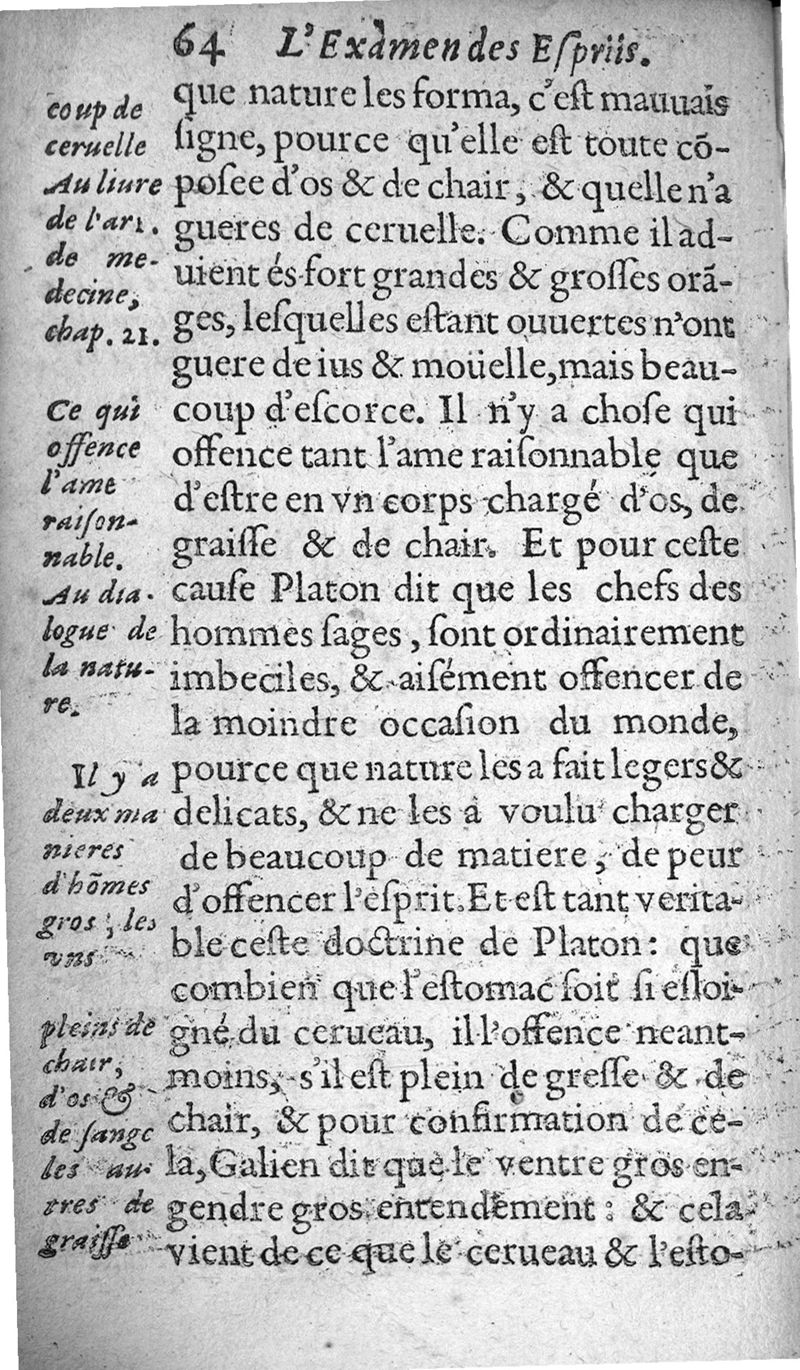 64 L'Examen des Eſpriis.
coup de
ceruelle
Au liure
de l'art.
de me-
decine,
chap. 21.
Ce qui
offence
l'ame
raiſon-
nable.
Au dia-
logue de
la natu-
re.
Il y a
deux ma
nieres
d'hõmes
gros, les
vns
pleins de
chair,
d'os &
de ſange
les au-
tres de
graiſſe
que nature les forma, c'eſt mauuais
ſigne, pource qu'elle eſt toute cõ-
poſee d'os & de chair, & quelle n'a
gueres de ceruelle. Comme il ad-
uient és fort grandes & groſſes orã-
ges, leſquelles eſtant ouuertes n'ont
guere de ius & moüelle, mais beau-
coup d'eſcorce. Il n'y a choſe qui
offence tant l'ame raiſonnable que
d'eſtre en vn corps chargé d'os, de
graiſſe & de chair. Et pour ceſte
cauſe Platon dit que les chefs des
hommes ſages, ſont ordinairement
imbeciles, & aiſément offencer de
la moindre occaſion du monde,
pource que nature les a fait legers &
delicats, & ne les a voulu charger
de beaucoup de matiere, de peur
d'offencer l'eſprit. Et eſt tant verita-
ble ceſte doctrine de Platon: que
combien que l'eſtomac ſoit ſi eſloi-
gné du cerueau, il l'offence neant-
moins, s'il eſt plein de greſſe & de
chair, & pour confirmation de ce-
la, Galien dit que le ventre gros en-
gendre gros entendement: & cela
vient de ce que le cerueau & l'eſto-